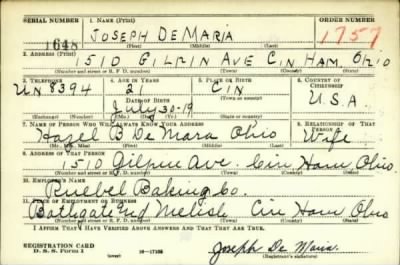 SERIAL NUMBER 1. NAME (Print) ORDER NUMBER
1648 JOSEPH DEMARIA 1757
(First) (Middle) (Last)
2. ADDRESS (Print)
1510 GILPIN AVE CIN HAM. OHIO
(Number and street or R. F. D. number) (Town) (County) (State)
3. TELEPHONE 4. AGE IN YEARS 5. PLACE OF BIRTH 6. COUNTRY OF CITIZENSHIP
UN 8394 21 CIN
DATE OF BIRTH (Town or county) U.S.A.
July-30-19
(Exchange) (Number) (Mo.) (Day) (Yr.) (State or country)
7. NAME OF PERSON WHO WILL ALWAYS KNOW YOUR ADDRESS 8. RELATIONSHIP OF THAT PERSON
Hazel B De Mara Ohio Wife
(Mr., Mrs., Miss) (First) (Middle) (Last)
9. ADDRESS OF THAT PERSON
1510 Gilpin Ave. Cin Ham Ohio
(Number and street or R. F. D. number) (Town) (County) (State)
10. EMPLOYER'S NAME
Ruebel Baking Co.
11. PLACE OF EMPLOYMENT OR BUSINESS
Bathgate and Melish Cin Ham Ohio
(Number and street or R. F. D. number) (Town) (County) (State)
I AFFIRM THAT I HAVE VERIFIED ABOVE ANSWERS AND THAT THEY ARE TRUE.
REGISTRATION CARD
D. S. S. Form 1 (over) 16-17105 Joseph De Maria.
(Registrant's signature)